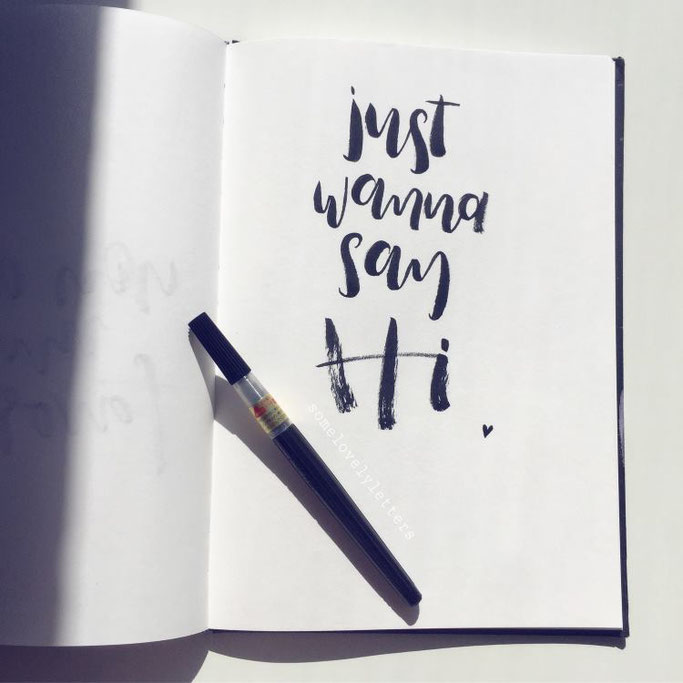 just
wanna
say
Hi
somelovelyletters